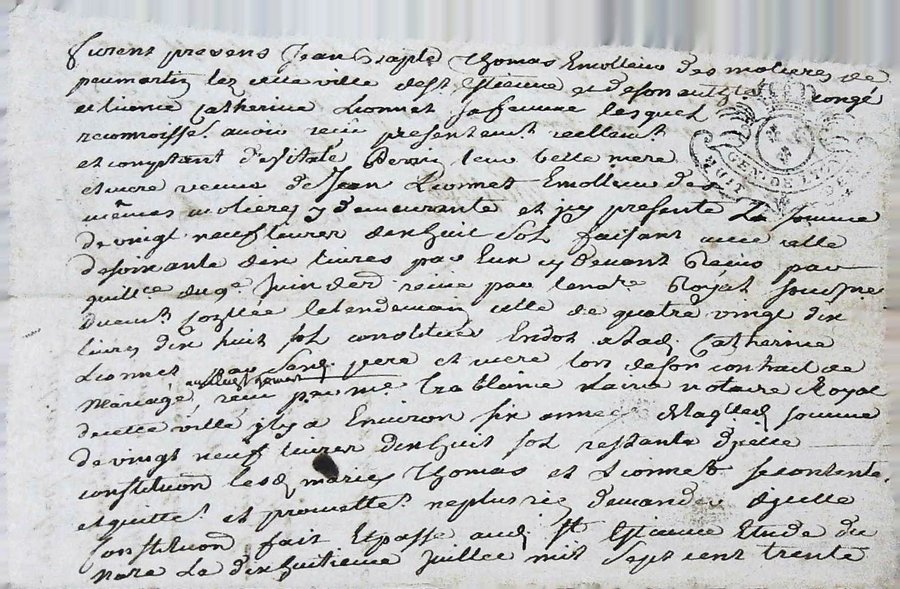 furent presens Jean Baptē Thomas Emolleur des molieres de
peumartin lez cette ville de st Estienne et de son autzte congé
et licence Catherine Lionnet sa femme lesquels
reconnoisset avoir reçu presentemt reellemt
et comptant de vitale leur belle mere
et mere veuve de Jean Lionnet Emolleur des
mêmes molieres y demeurante et icy presente La somme
de vingt neuf livres dixhuit sols faisant avec celle
de soixante dix livres par Eux cy devant reciee par
quittce du 9e Juin der reciee par le nore Royal soussne
duemt le lendemain celle de quatre vingt dix
livres dix huit sol constituée En dot a lad. Catherine
Lionnet par sesd. pere et mere lors de son contrait de
mariage, reciu par me notaire Royal
de cette ville il y a Environ six années de laquelle somme
de vingt neuf livres dixhuit sol restante d'jcelle
constituon lesd mariés Thomas et Lionnet se contente.
et quitte. et promette. ne plus rien demander d'jcelle
Constituon fait Et passé aud. st Estienne Etude du
nore Le dixhuitieme Juillet mil sept cent trente
GEN. DE LYON
HUIT DEN.